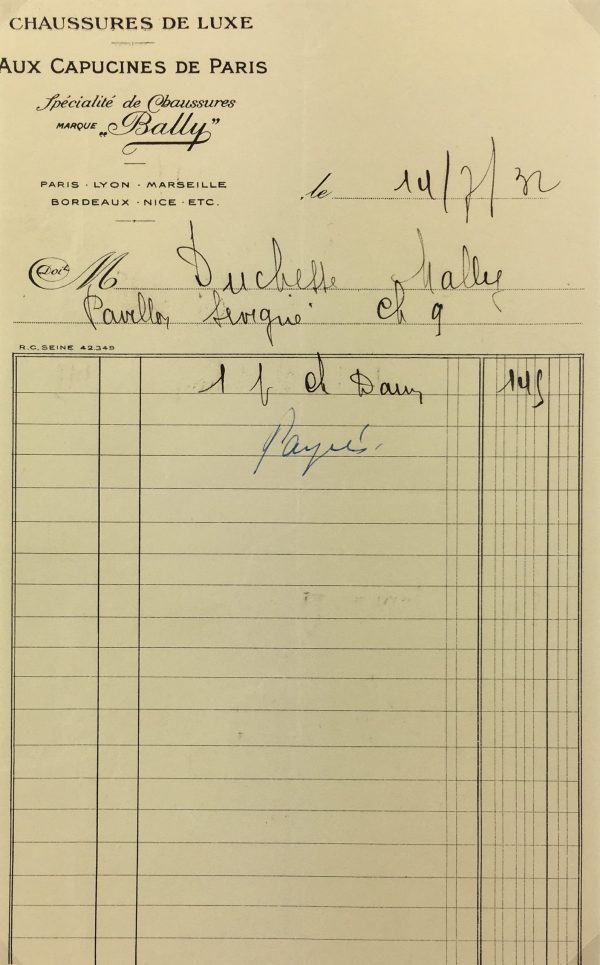 CHAUSSURES DE LUXE
AUX CAPUCINES DE PARIS
Spécialité de Chaussures
MARQUE „Bally”
PARIS · LYON · MARSEILLE
BORDEAUX · NICE · ETC.
le 14/7/32
Doit M Duchesse Mally
Pavillon Sévigné Ch 9
R.C. SEINE 42.349
1 p ch Dam 145
Payés.